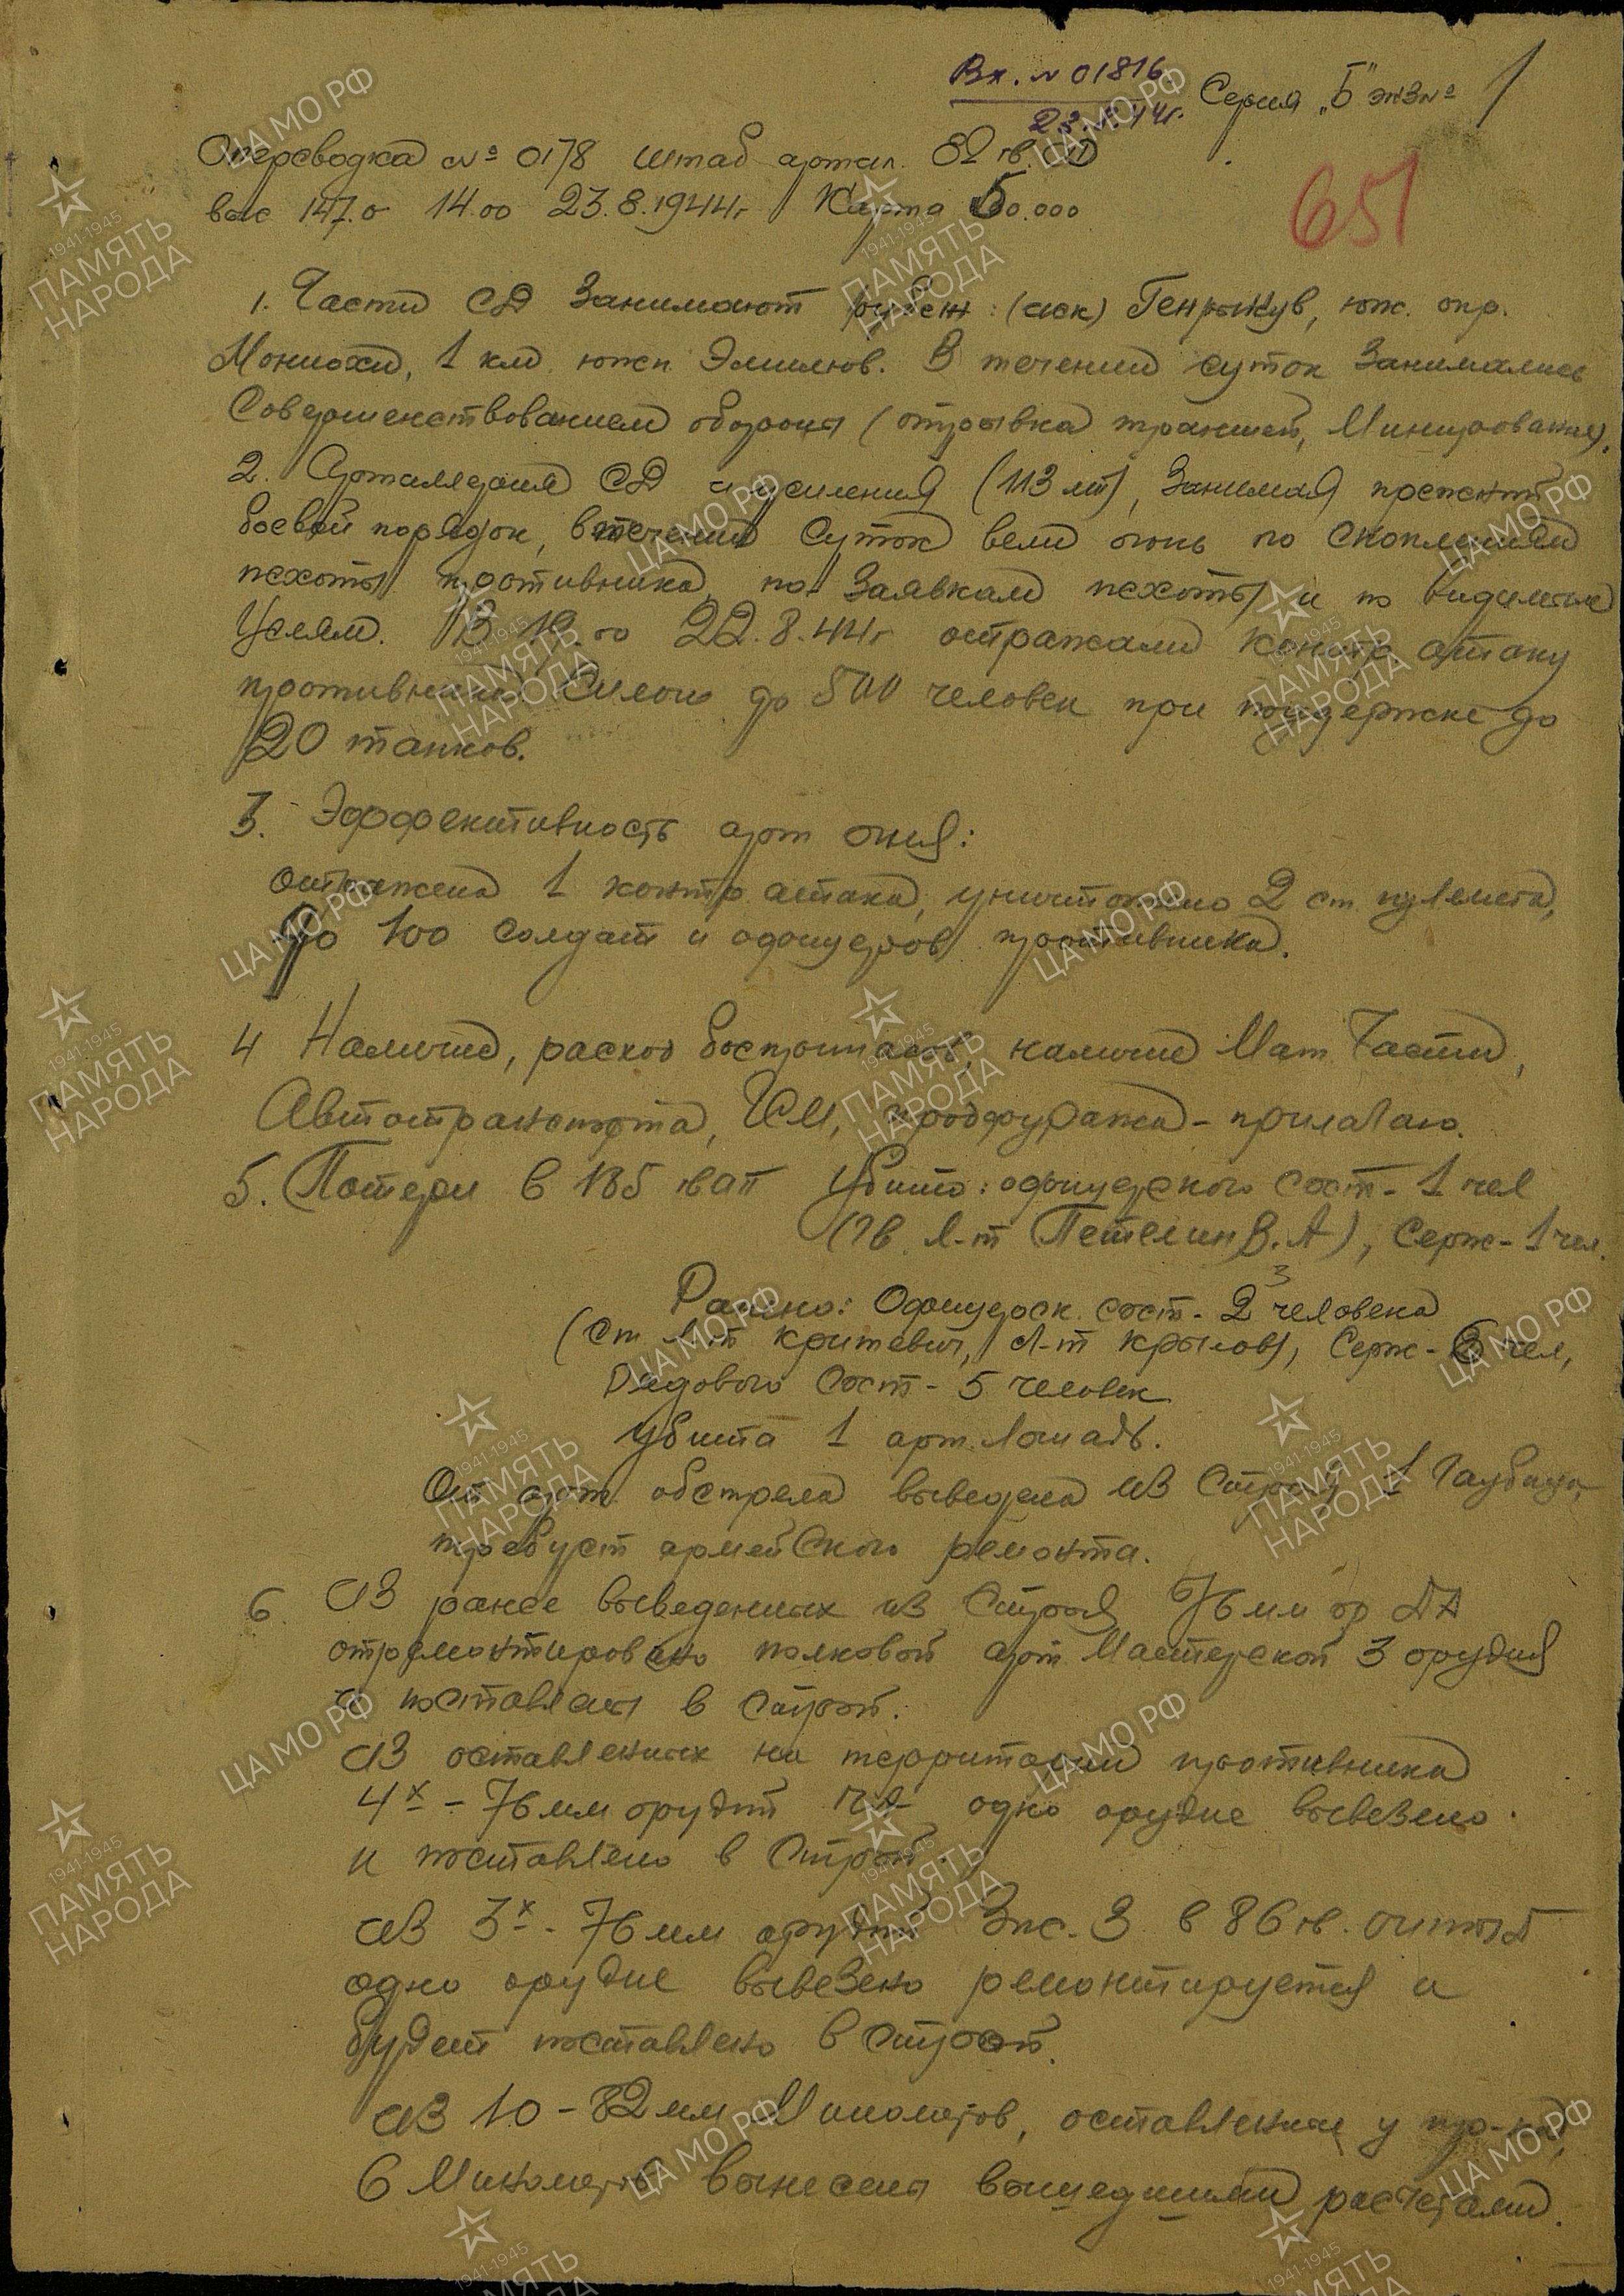 Вх. № 01816
23.8.44г.
Серия „Б" экз № 1
Оперсводка № 0178 штаб артил. 82 гв. СД
выс 147.0 14.00 23.8.1944г Карта 50.000
651
1. Части СД занимают рубеж: (иск) Генрыкув, юж. опр.
Мониохи, 1 км южн. Эмилюв. В течении суток занимались
Совершенствованием обороны (отрывка траншей, Минирование).
2. Артиллерия СД и усиления (113 лт), Занимая прежний
боевой порядок, в течении Суток вели огонь по скоплениям
пехоты противника, по Заявкам пехоты и по видимым
Целям. В 19.00 22.8.44г отражали контр атаку
противника Силою до 500 человек при поддержке до
20 танков.
3. Эффективность арт огня:
отражена 1 контр атака, уничтожено 2 ст. пулемета,
До 100 солдат и офицеров противника.
4 Наличие, расход боеприпасов, наличие Мат Части,
Автотранспорта, ГСМ, продфуража - прилагаю.
5. Потери в 185 гв ап Убито: офицерского сост - 1 чел
(гв л-т Петелин В.А), Серж - 1 чел.
3
Ранено: Офицерск. сост - 2 человека
(Ст л-т Критевич, л-т Крылов), Серж - чел,
Рядового Сост - 5 человек
Убита 1 арт. лошадь.
От арт. обстрела выведена из Строя 1 Гаубица,
требует армейского ремонта.
6 Из ранее выведенных из Строя 76 мм ор ДА
отремонтировано полковой арт Мастерской 3 орудия
и поставлены в Строй.
Из оставленных на территории противника
4х - 76 мм орудий ПА одно орудие вывезено
и поставлено в Строй.
Из 3х - 76 мм орудий Зис-3 в 86 гв. оиптд
одно орудие вывезено ремонтируется и
будет поставлено в Строй.
Из 10 - 82 мм Минометов, оставленные у пр-ка,
6 Минометов вынесены вышедшими расчетами.
ЦА МО РФ
1941-1945
ПАМЯТЬ
НАРОДА